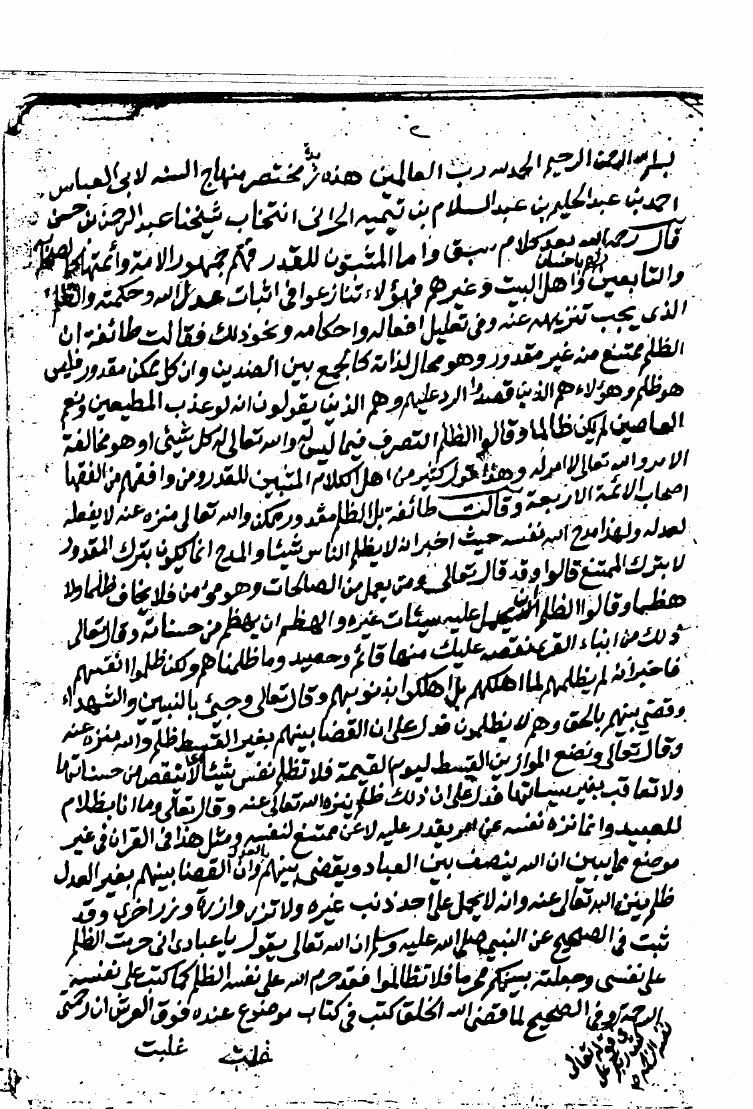 ٢
بسم الله الرحمن الرحيم الحمد لله رب العالمين هذه نبذة مختصر منهاج السنه لابي العباس
احمد بن عبد الحليم بن عبد السلام بن تيميه الحراني انتخاب شيخنا عبد الرحمن بن حسن
قال رحمه الله بعد كلام سبق واما المثبتون للقدر فهم جمهور الامة وائمتها كالصحابة
والتابعين لهم باحسان واهل البيت وغيرهم فهؤلاء تنازعوا في اثبات عدل الله وحكمته والظلم
الذي يجب تنزيهه عنه وفي تعليل افعاله واحكامه ونحو ذلك فقالت طائفة ان
الظلم ممتنع منه غير مقدور وهو محال لذاته كالجمع بين الضدين وان كل ممكن مقدور فليس
هو ظلم وهؤلاء هم الذين قصدوا الرد عليهم وهم الذين يقولون انه لو عذب المطيعين ونعم
العاصين لم يكن ظالما وقالوا الظلم التصرف فيما ليس له والله تعالى له كل شيئ او هو مخالفة
الامر والله تعالى لا امر له وهذا قول كثير من اهل الكلام المثبتين للقدر ومن وافقهم من الفقها
اصحاب الائمة الاربعة وقالت طائفة بل الظلم مقدور ممكن والله تعالى منزه عنه لا يفعله
لعدله ولهذا مدح الله نفسه حيث اخبر انه لا يظلم الناس شيئا والمدح انما يكون بترك المقدور
لا بترك الممتنع قالوا وقد قال تعالى ومن يعمل من الصالحات وهو مؤمن فلا يخاف ظلما ولا
هضما وقالوا الظلم ان يحمل عليه سيئات غيره والهضم ان يهضم من حسناته وقال تعالى
ذلك من انباء القرى نقصه عليك منها قائم وحصيد وما ظلمناهم ولكن ظلموا انفسهم
فاخبر انه لم يظلمهم لما اهلكهم بل اهلكوا بذنوبهم وقال تعالى وجيئ بالنبيين والشهداء
وقضي بينهم بالحق وهم لا يظلمون فدل على ان القضا بينهم بغير القسط ظلم والله منزه عنه
وقال تعالى ونضع الموازين القسط ليوم القيمة فلا تظلم نفس شيئا اي لا تنقص من حسناتها
ولا تعاقب بغير سيئاتها فدل على ان ذلك ظلم ينزه الله تعالى عنه وقال تعالى وما انا بظلام
للعبيد وانما نزه نفسه عن امر يقدر عليه لا عن ممتنع لنفسه ومثل هذا في القران في غير
موضع مما يبين ان الله ينصف بين العباد ويقضي بينهم بالعدل وان القضا بينهم بغير العدل
ظلم ينزه الله تعالى عنه وانه لا يحمل على احد ذنب غيره ولا تزر وازرة وزر اخرى وقد
ثبت في الصحيح عن النبي صلى الله عليه وسلم ان الله تعالى يقول يا عبادي اني حرمت الظلم
على نفسي وجعلته بينكم محرما فلا تظالموا فقد حرم الله على نفسه الظلم كما كتب على نفسه
الرحمة وفي الصحيح لما قضى الله الخلق كتب في كتاب موضوع عنده فوق العرش ان رحمتي
غلبت غلبت
في قوله تعالى
كتب ربكم على
نفسه الرحمة